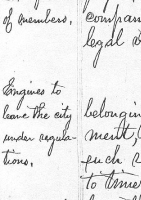 of members.
compan
legal
Engines to
leave the city
under regula-
tions.
belongin
ment,
such
to time